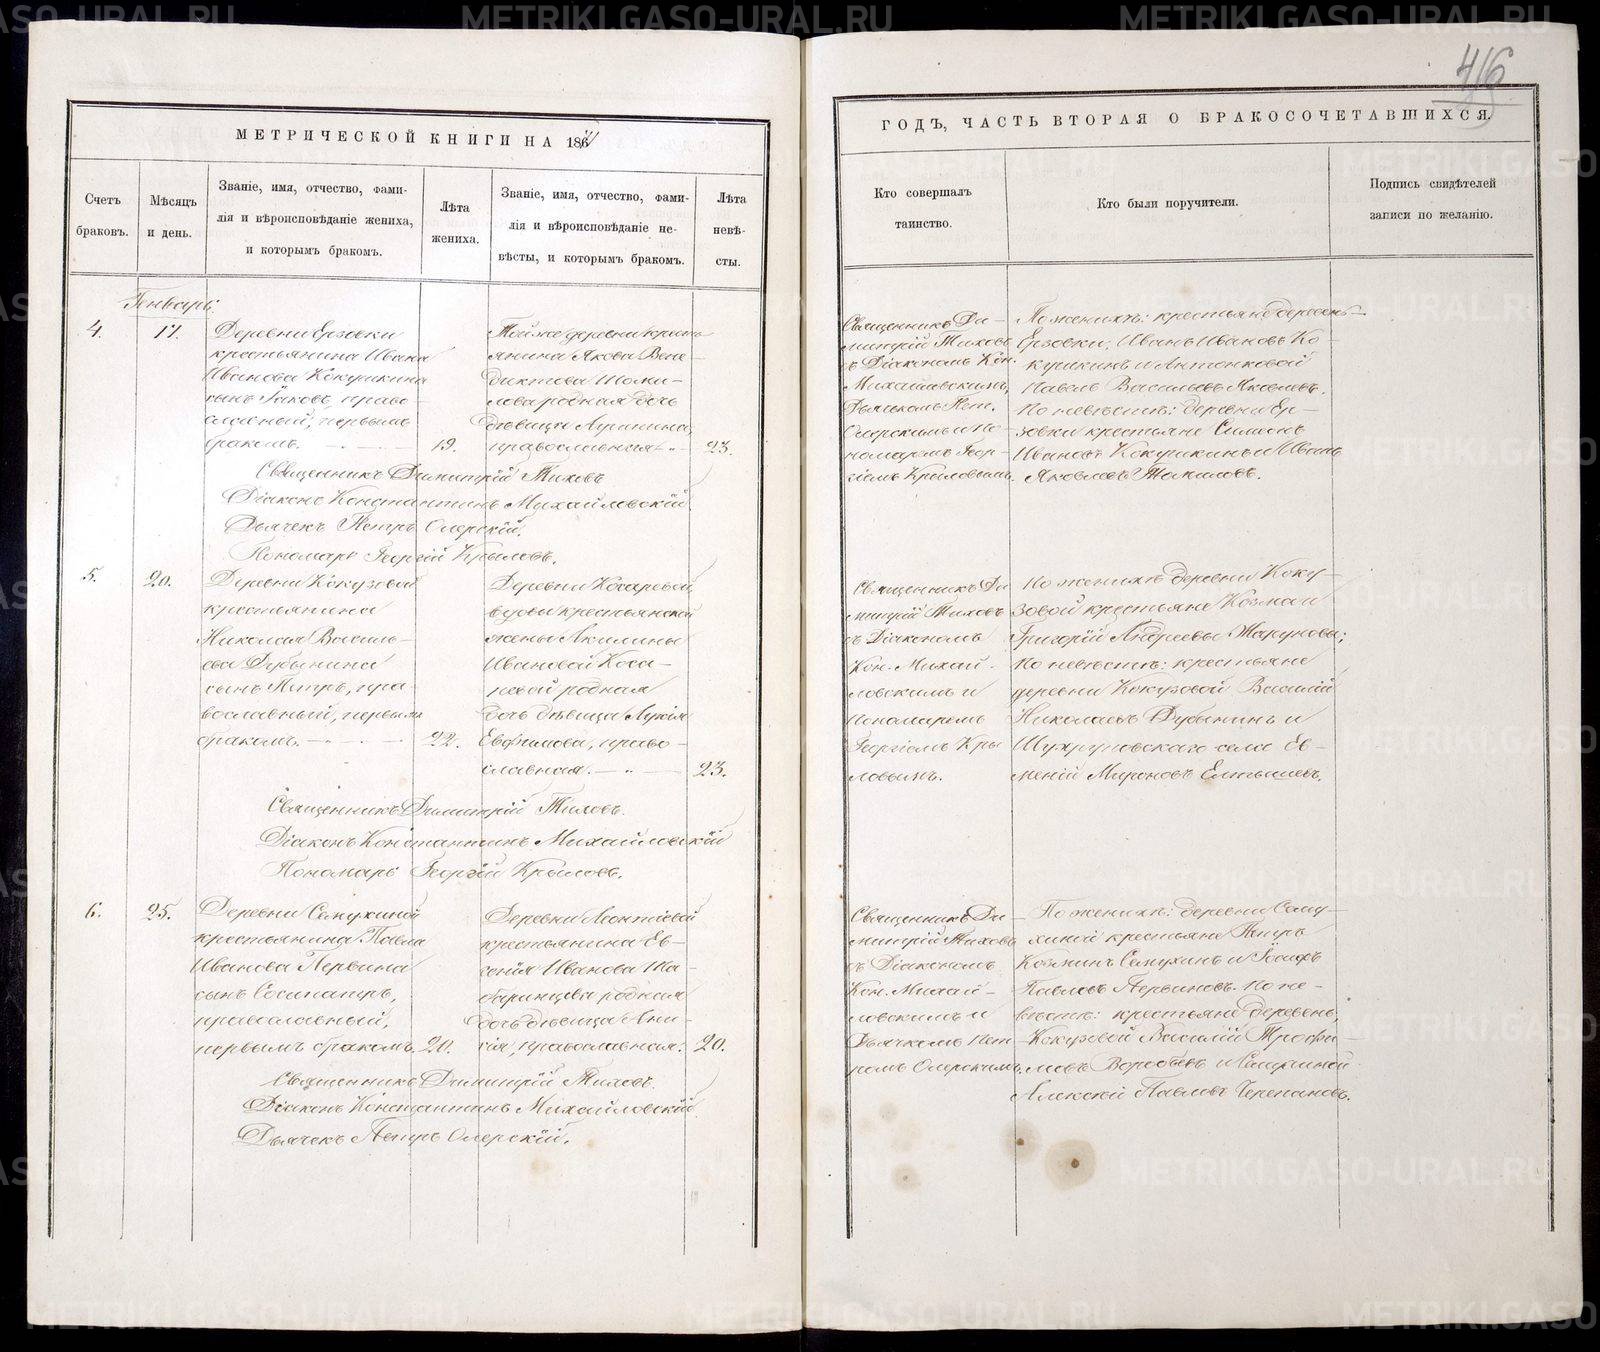 416
МЕТРИЧЕСКОЙ КНИГИ НА 186
ГОДЪ, ЧАСТЬ ВТОРАЯ О БРАКОСОЧЕТАВШИХСЯ.
Счетъ
браковъ.
Мѣсяцъ
и день.
Званіе, имя, отчество, фами-
лія и вѣроисповѣданіе жениха,
и которымъ бракомъ.
Лѣта
жениха.
Званіе, имя, отчество, фами-
лія и вѣроисповѣданіе не-
вѣсты, и которымъ бракомъ.
Лѣта
невѣ-
сты.
Кто совершалъ
таинство.
Кто были поручители.
Подпись свидѣтелей
записи по желанію.
Генварь
4.
17.
Деревни Ерзовки
крестьянина Ивана
Иванова Кокушкина
сынъ Іаковъ, право-
славный, первымъ
бракомъ.
19.
Той же деревни кресть-
янина Якова Вене-
диктова
родная дочь
дѣвица
православная
23.
Священникъ Ди-
митрій Тиховъ
съ Діакономъ Кон.
Михайловскимъ,
Дьячкомъ Пет.
Олерскимъ и По-
номаремъ Геор-
гіемъ Крыловымъ.
По женихѣ: крестьяне деревень
Ерзовки, Иванъ Ивановъ Ко-
кушкинъ и Антонковой
Павелъ Васильевъ Яковлевъ.
По невѣстѣ: деревни Ер-
зовки крестьяне Симеонъ
Ивановъ Кокушкинъ и Иванъ
Яковлевъ
Священникъ Димитрій Тиховъ
Діаконъ Константинъ Михайловскій.
Дьячекъ Петръ Олерскій.
Пономарь Георгій Крыловъ.
5.
20.
Деревни Кокузовой
крестьянина
Николая Василь-
ева Дубынина
сынъ Петръ, пра-
вославный, первымъ
бракомъ.
22.
Деревни Косаревой,
вдовы крестьянской
жены Акилины
Ивановой Коса-
ревой родная
дочь дѣвица Лукія
Евфимова, право-
славная.
23.
Священникъ Ди-
митрій Тиховъ
съ Діакономъ
Кон. Михай-
ловскимъ и
Пономаремъ
Георгіемъ Кры-
ловымъ.
По женихѣ деревни Коку-
зовой крестьяне Козма и
Григорій Андреевы
По невѣстѣ: крестьяне
деревни Кокузовой Василій
Николаевъ Дубынинъ и
села Ев-
меній Мироновъ Елтышевъ.
Священникъ Димитрій Тиховъ.
Діаконъ Константинъ Михайловскій
Пономарь Георгій Крыловъ.
6.
25.
Деревни Семухиной
крестьянина Павла
Иванова Первина
сынъ Сосипатръ,
православный,
первымъ бракомъ.
20.
Деревни Леонтіевой
крестьянина Ев-
сенія Иванова Та-
баринцева родная
дочь дѣвица Ани-
сія, православная.
20.
Священникъ Ди-
митрій Тиховъ
съ Діакономъ
Кон. Михай-
ловскимъ и
Дьячкомъ Пет-
ромъ Олерскимъ.
По женихѣ: деревни Сему-
хиной крестьяне Петръ
Козминъ Семухинъ и Іосифъ
Павловъ Первиновъ. По не-
вѣстѣ: крестьяне деревень,
Кокузовой Василій Трофи-
мовъ Воробьевъ и Семухиной
Алексій Павловъ Черепановъ.
Священникъ Димитрій Тиховъ.
Діаконъ Константинъ Михайловскій
Дьячекъ Петръ Олерскій.
METRIKI.GASO-URAL.RU